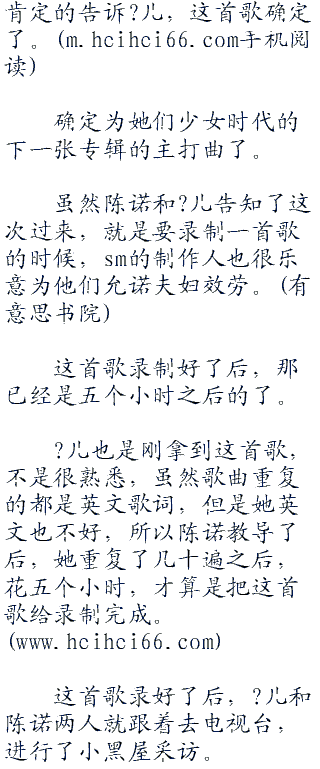 肯定的告诉?儿，这首歌确定
了。(m.hcihci66.com手机阅
读)
确定为她们少女时代的
下一张专辑的主打曲了。
虽然陈诺和?儿告知了这
次过来，就是要录制一首歌
的时候，sm的制作人也很乐
意为他们允诺夫妇效劳。(有
意思书院)
这首歌录制好了后，那
已经是五个小时之后的了。
?儿也是刚拿到这首歌，
不是很熟悉，虽然歌曲重复
的都是英文歌词，但是她英
文也不好，所以陈诺教导了
后，她重复了几十遍之后，
花五个小时，才算是把这首
歌给录制完成。
(www.hcihci66.com)
这首歌录好了后，?儿和
陈诺两人就跟着去电视台，
进行了小黑屋采访。